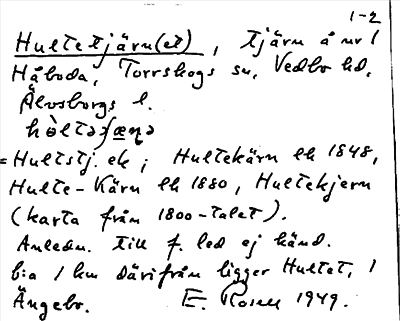 1-2
Hultetjärn(et), tjärn å nr 1
Håbuda, Torrskogs sn, Vedbo hd,
Älvsborgs l.
hòltəʃæɳə
= Hultstj. ek; Hultekärn lk 1848,
Hulte-Kärn lk 1880, Hultekjern
(karta från 1800-talet).
Anledn. till f. led ej känd.
b:a 1 km därifrån ligger Hultet, 1
Ängebo. E. Rosell 1949.